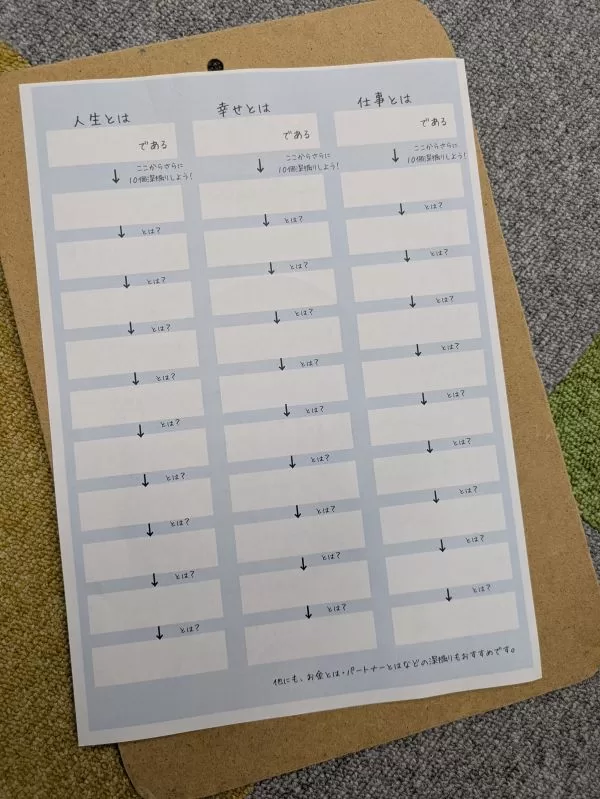 人生とは
である
ここからさらに
10個深掘りしよう!
とは?
とは?
とは?
とは?
とは?
とは?
とは?
とは?
とは?
幸せとは
である
ここからさらに
10個深掘りしよう!
とは?
とは?
とは?
とは?
とは?
とは?
とは?
とは?
とは?
仕事とは
である
ここからさらに
10個深掘りしよう!
とは?
とは?
とは?
とは?
とは?
とは?
とは?
とは?
とは?
他にも、お金とは・パートナーとはなどの深掘りもおすすめです。